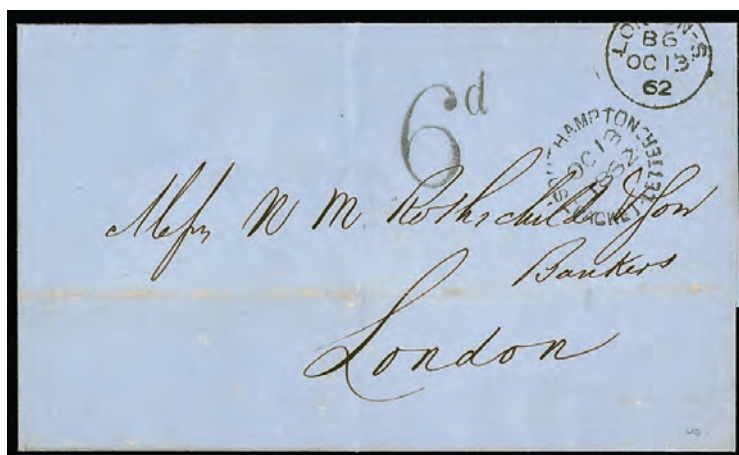 LONDON-S.
B6
OC 13
62
6d
SOUTHAMPTON
PACKET LETTER
OC 13
1862
Messrs N M Rothschild & Son
Bankers
London